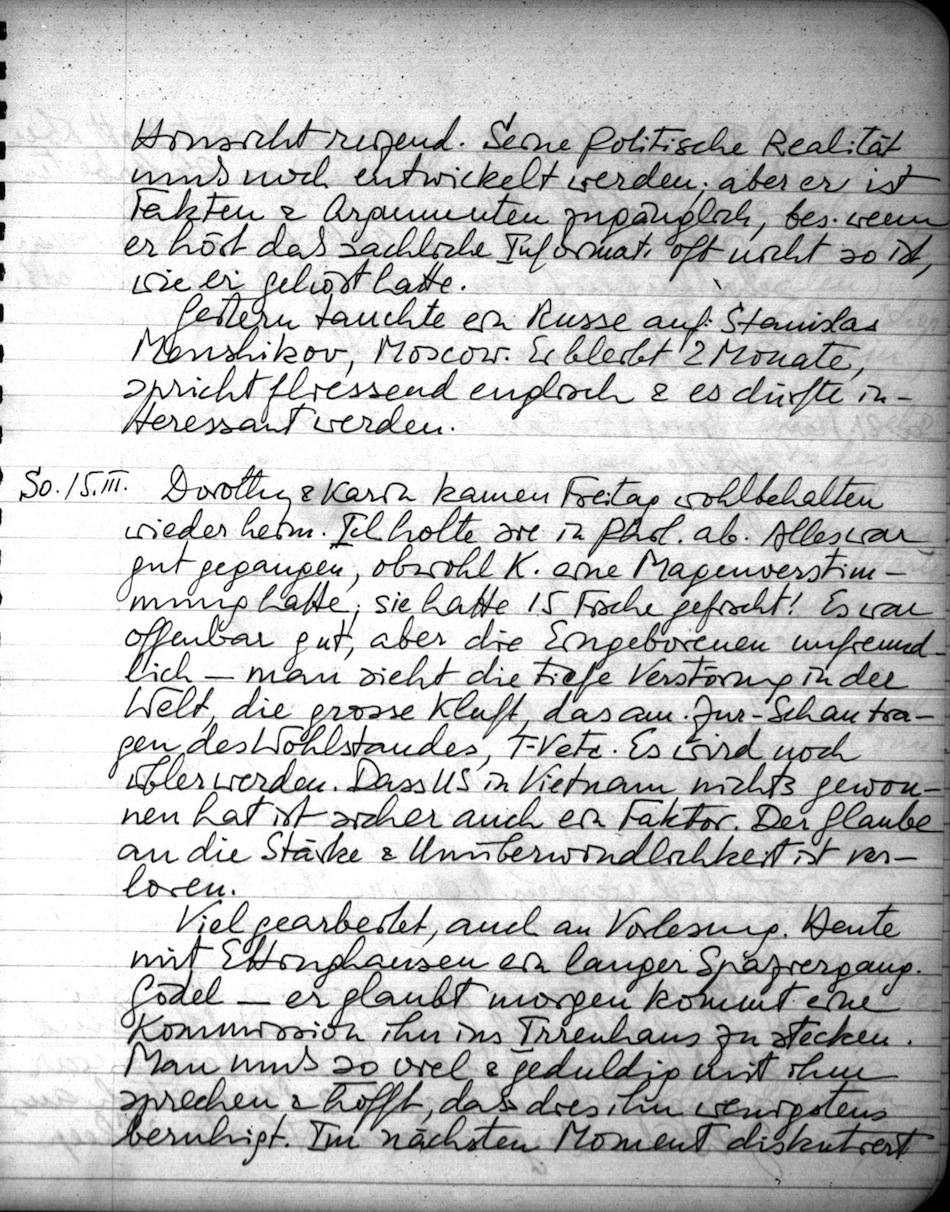 Hinsicht reizend. Seine politische Realität
muss noch entwickelt werden; aber er ist
Fakten & Argumenten zugänglich, bes. wenn
er hört dass sachliche Informat. oft nicht so ist,
wie er gehört hatte.
Gestern tauchte ein Russe auf: Stanislas
Menshikov, Moscow. Er bleibt 2 Monate,
spricht fliessend englisch & es dürfte in-
teressant werden.
So. 15.III. Dorothy & Karin kamen Freitag wohlbehalten
wieder heim. Ich holte sie in Phil. ab. Alles war
gut gegangen, obwohl K. eine Magenverstim-
mung hatte; sie hatte 15 Fische gefischt! Es war
offenbar gut, aber die Eingeborenen unfreund-
lich — man sieht die tiefe Verstörung in der
Welt, die grosse Kluft, das am. Zur-Schau tra-
gen des Wohlstandes, T-V etc. Es wird noch
übler werden. Dass US in Vietnam nichts gewon-
nen hat ist sicher auch ein Faktor. Der Glaube
an die Stärke & Unüberwindlichkeit ist ver-
loren.
Viel gearbeitet, auch an Vorlesung. Heute
mit Ettinghausen ein langer Spaziergang.
Gödel — er glaubt morgen kommt eine
Kommission ihn ins Irrenhaus zu stecken.
Man muss so viel & geduldig mit ihm
sprechen & hofft, dass dies ihn wenigstens
beruhigt. Im nächsten Moment diskutiert